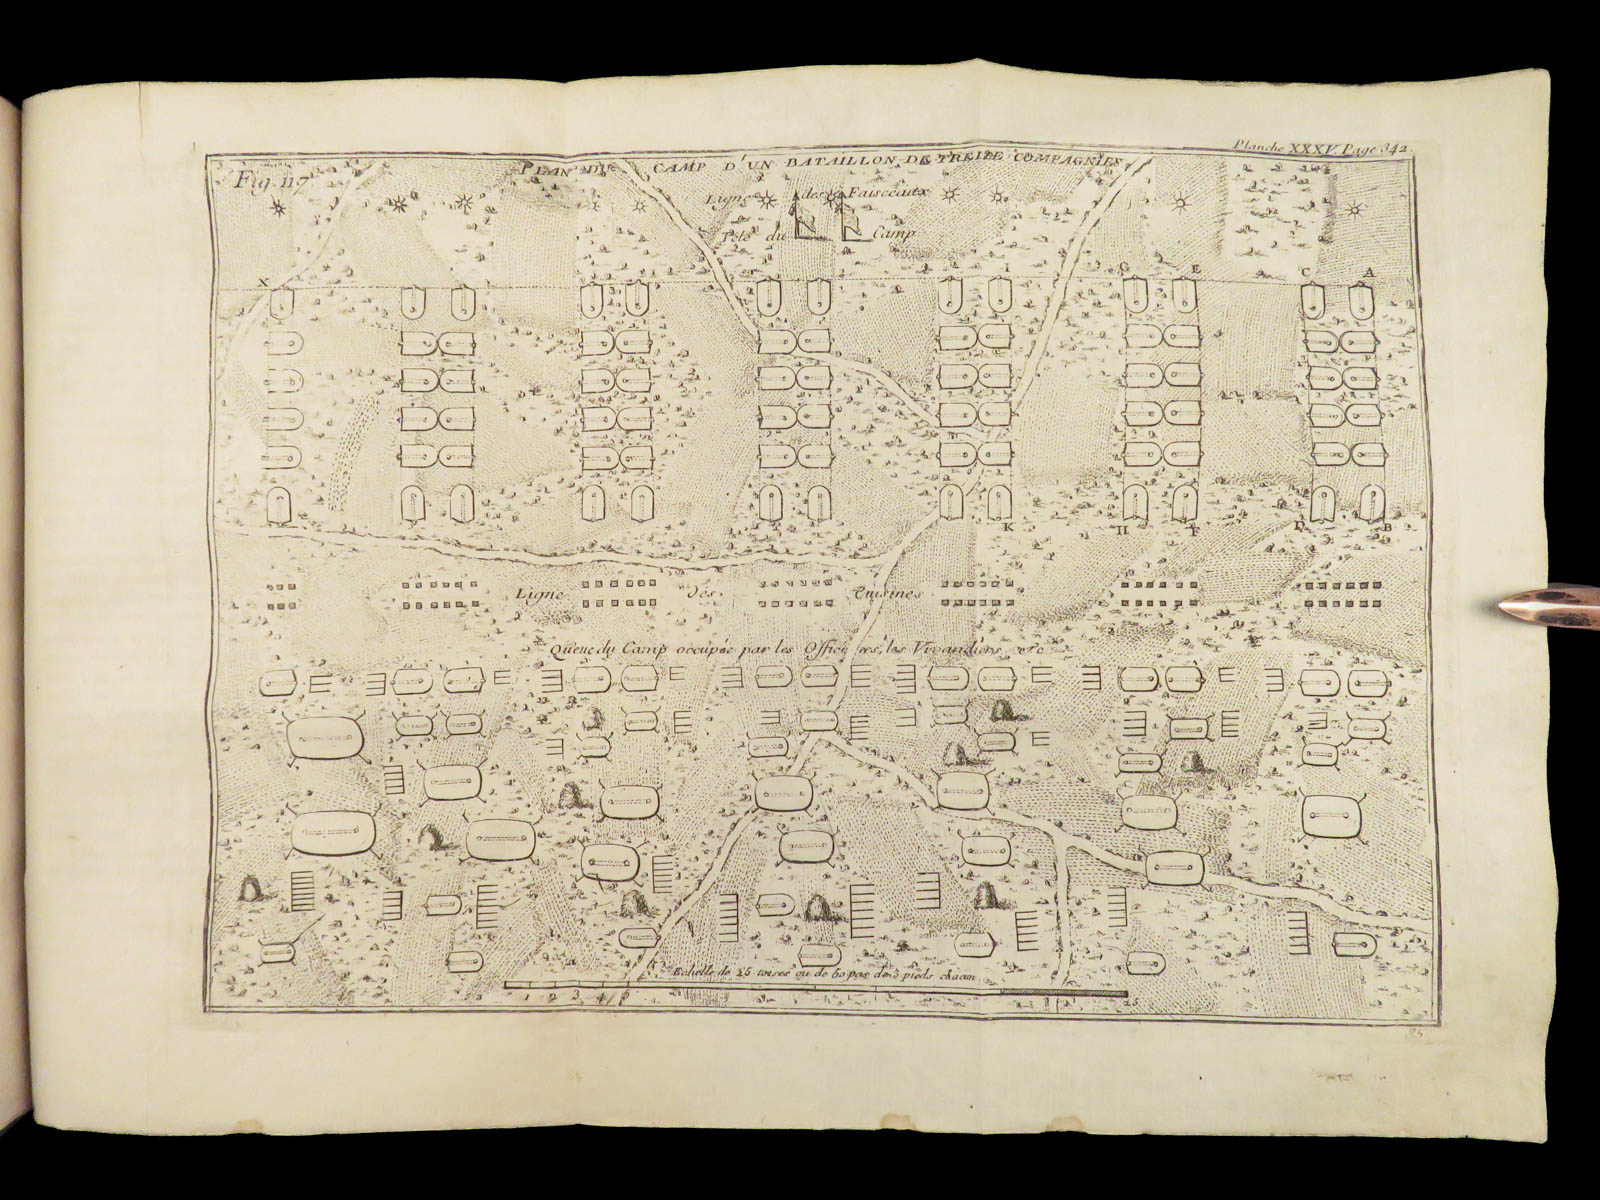 Planche XXXV. Page 342.
PLAN DU CAMP D'UN BATAILLON DE TREIZE COMPAGNIES
Fig. 117
Ligne des Faisceaux
Tête du Camp
X I G E C A
K H F D B
Ligne des Cuisines
Queue du Camp occupée par les Officiers, les Vivandiers etc.
Echelle de 25 toises ou de 50 pas de 3 pieds chacun
1 2 3 4 5 25